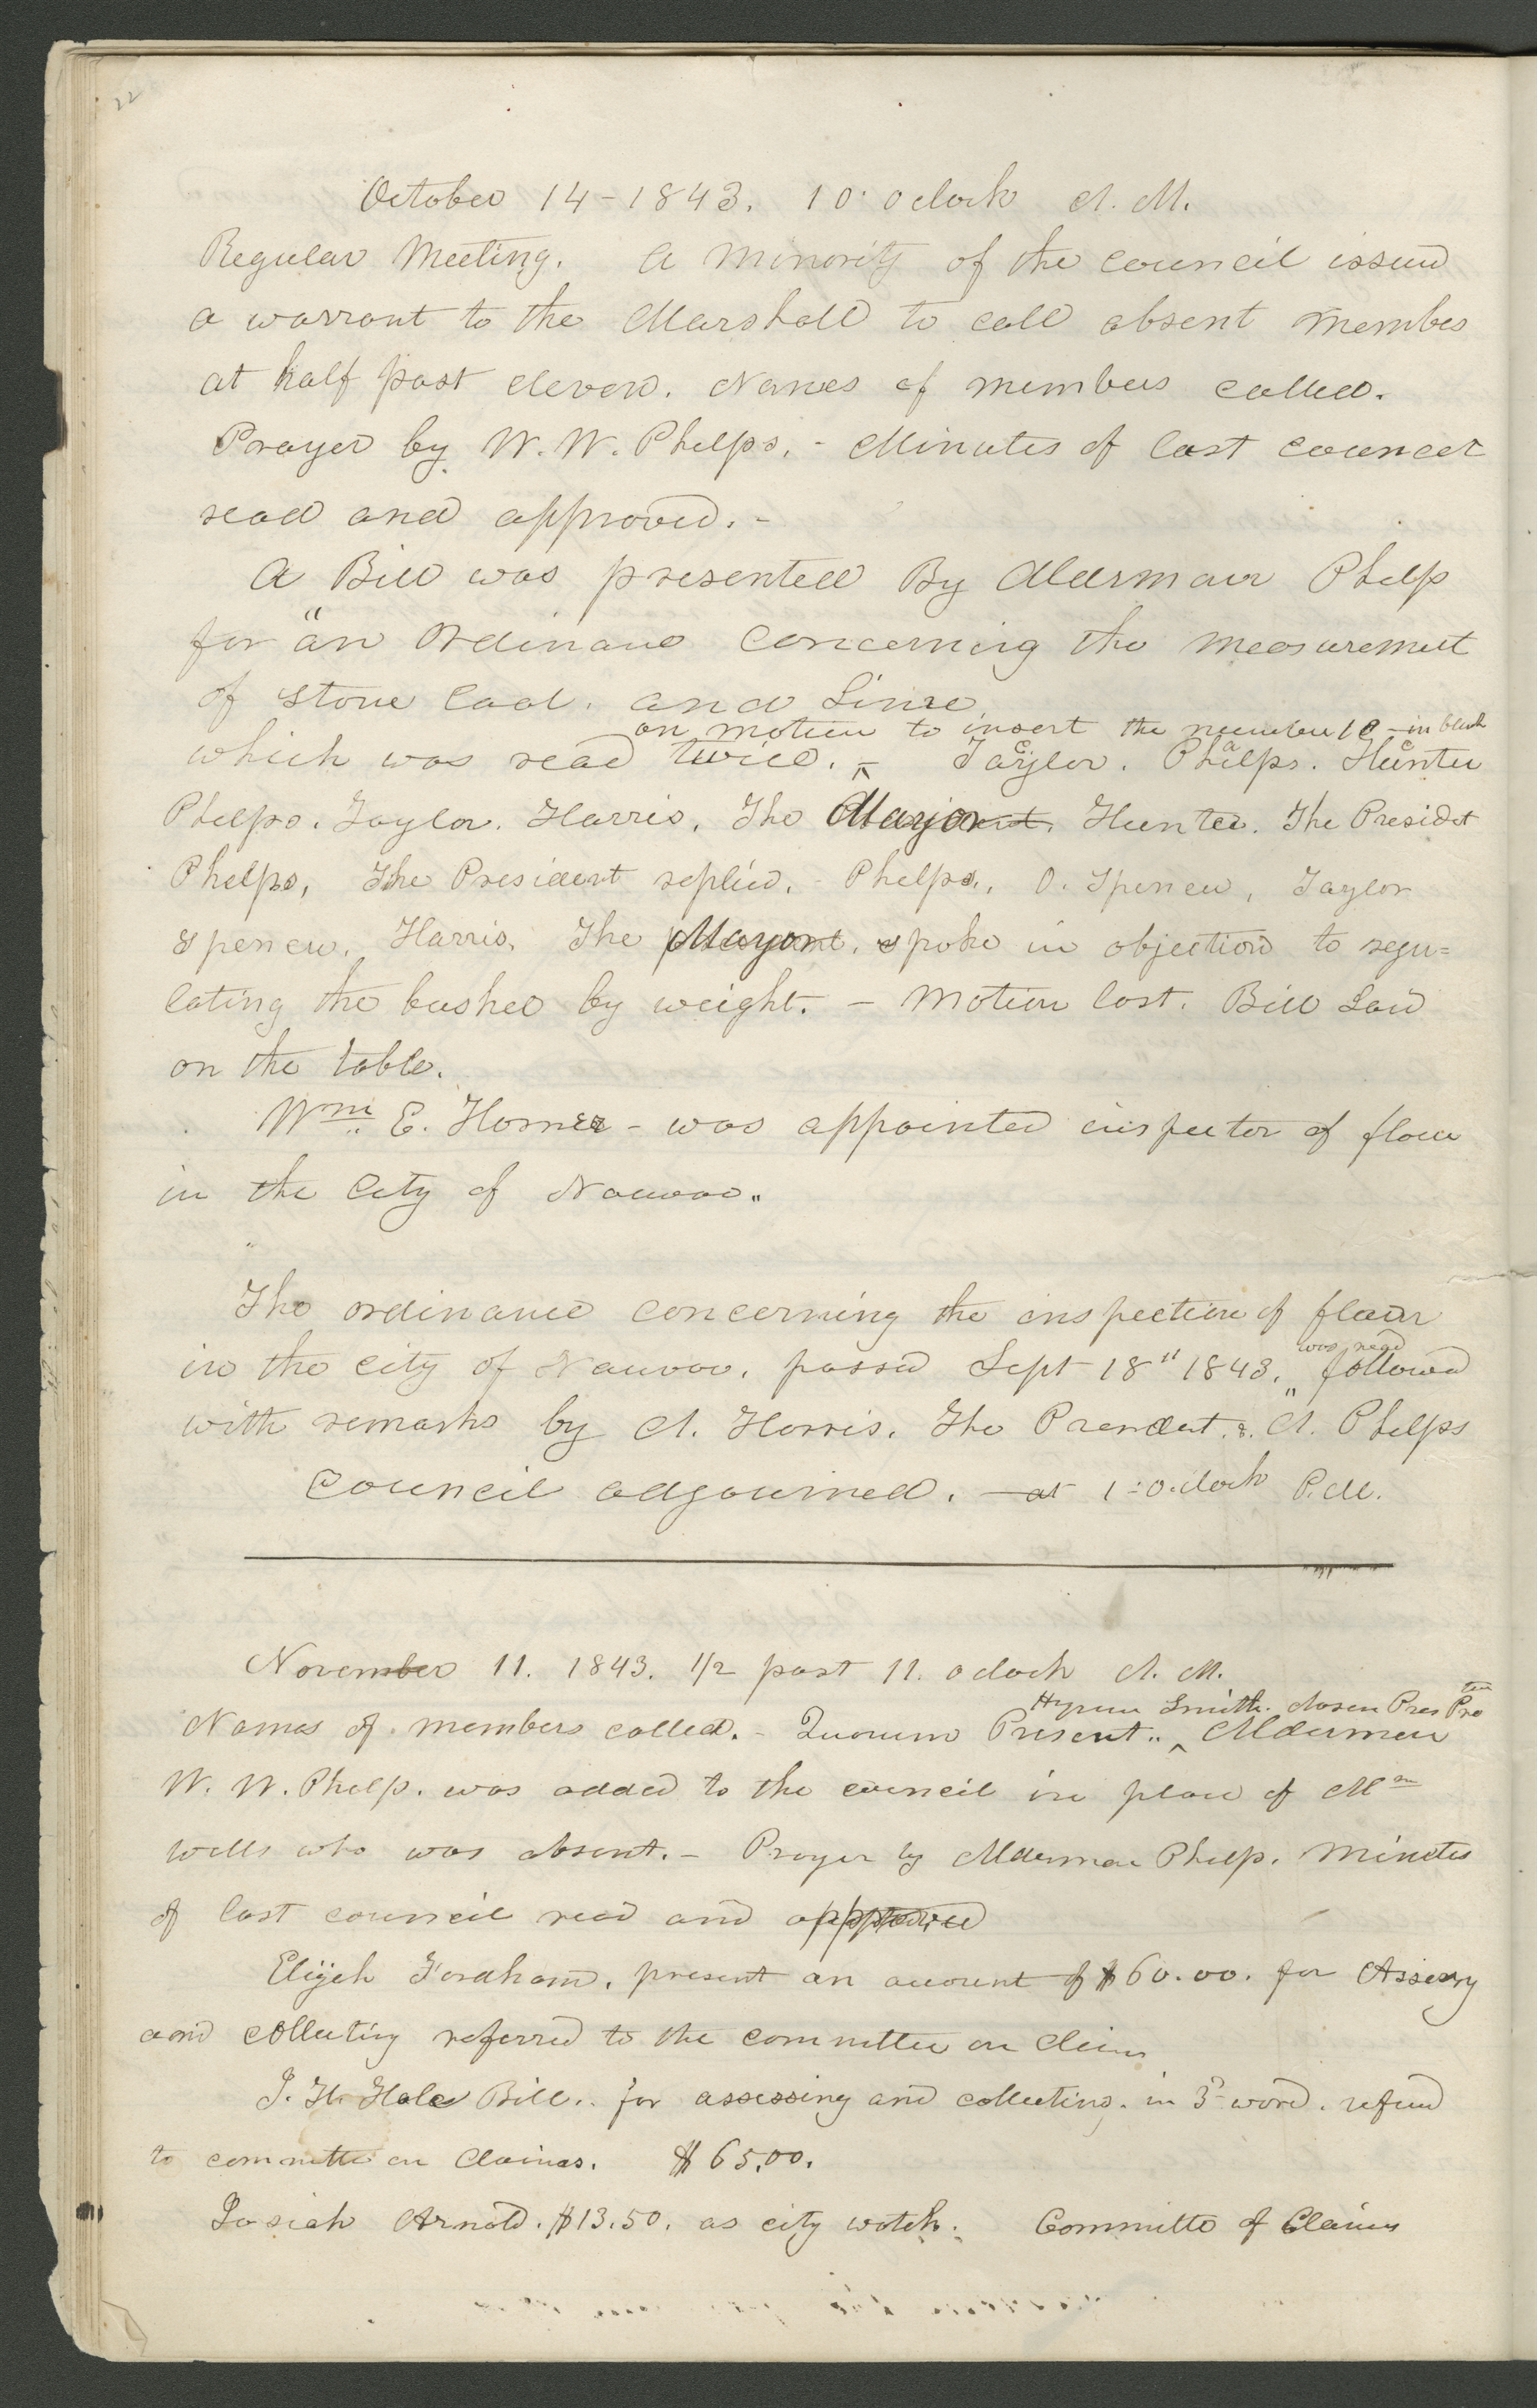 22
October 14-1843. 10 oclock A. M.
Regular Meeting. A minority of the council issued
a warrant to the Marshall to call absent members
at half past eleven. Names of members called.
Prayer by W. W. Phelps. - Minutes of last council
read and approved. -
A Bill was presented By Alderman Phelps
for "an Ordinance concerning the measurement
of Stone Coal. and Lime
on motion to insert the number 10 - in blank
which was read twice. - Taylor. Phelps. Hunter
Phelps. Taylor. Harris. The Mayor Hunter. The Presidet
Phelps, The President replied. - Phelps., O. Spencer, Taylor
Spencer. Harris. The Mayor. spoke in objection to regu=
lating the bushel by weight. - Motion lost. Bill Laid
on the table.
Wm. E. Horner - was appointed inspector of flour
in the City of Nauvoo.
The ordinance concerning the inspection of flour
was read
in the City of Nauvoo. passed Sept 18" 1843. followed
with remarks by A. Harris. The President. & A. Phelps
Council adjourned. - at 1 - o.clock P.M.
November 11. 1843. 1/2 past 11. oclock A. M.
Hyrum Smith. chosen Pres Pro tem
Names of members called. - Quorum Present. Aldermen
W. W. Phelps. was added to the council in place of
Wells who was absent. - Prayer by Alderman Phelps. Minutes
of last council read and approved
Elijah Fordham. present an account of $60.00. for Assessg
and collecting referred to the committee on claims
J. H. Hale Bill.. for assessing and collecting. in 3d ward. referred
to committee on Claims. $65.00.
Josiah Arnold. $13.50. as city watch. Committe of Claims